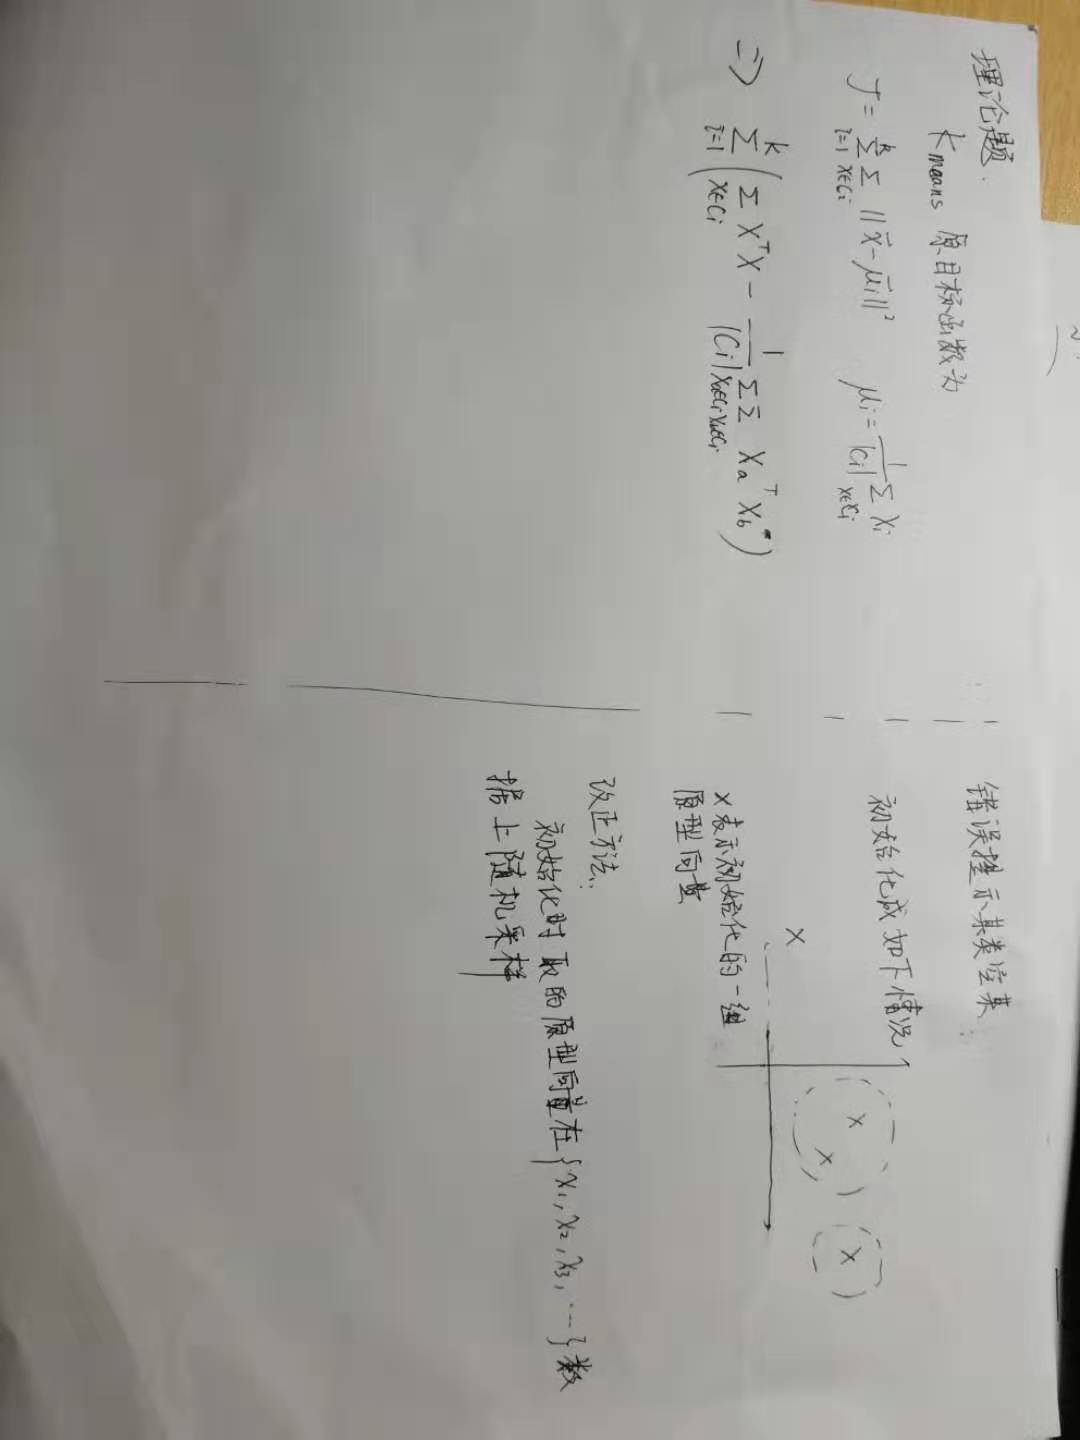 理论题.
Kmeans 原目标函数为
J = Σ_{i=1}^{k} Σ_{x∈Ci} ||x⃗ - μ⃗i||² μi = 1/|Ci| Σ_{x∈Ci} Xi
=> Σ_{i=1}^{k} ( Σ_{x∈Ci} X^T X - 1/|Ci| Σ_{Xa∈Ci} Σ_{Xb∈Ci} Xa^T Xb )
错误提示某类空某
初始化成如下情况
x x
x
x
x表示初始化的一组
原型向量
改正方法:
初始化时取的原型向量在{x₁, x₂, x₃, …}数
据上随机采样